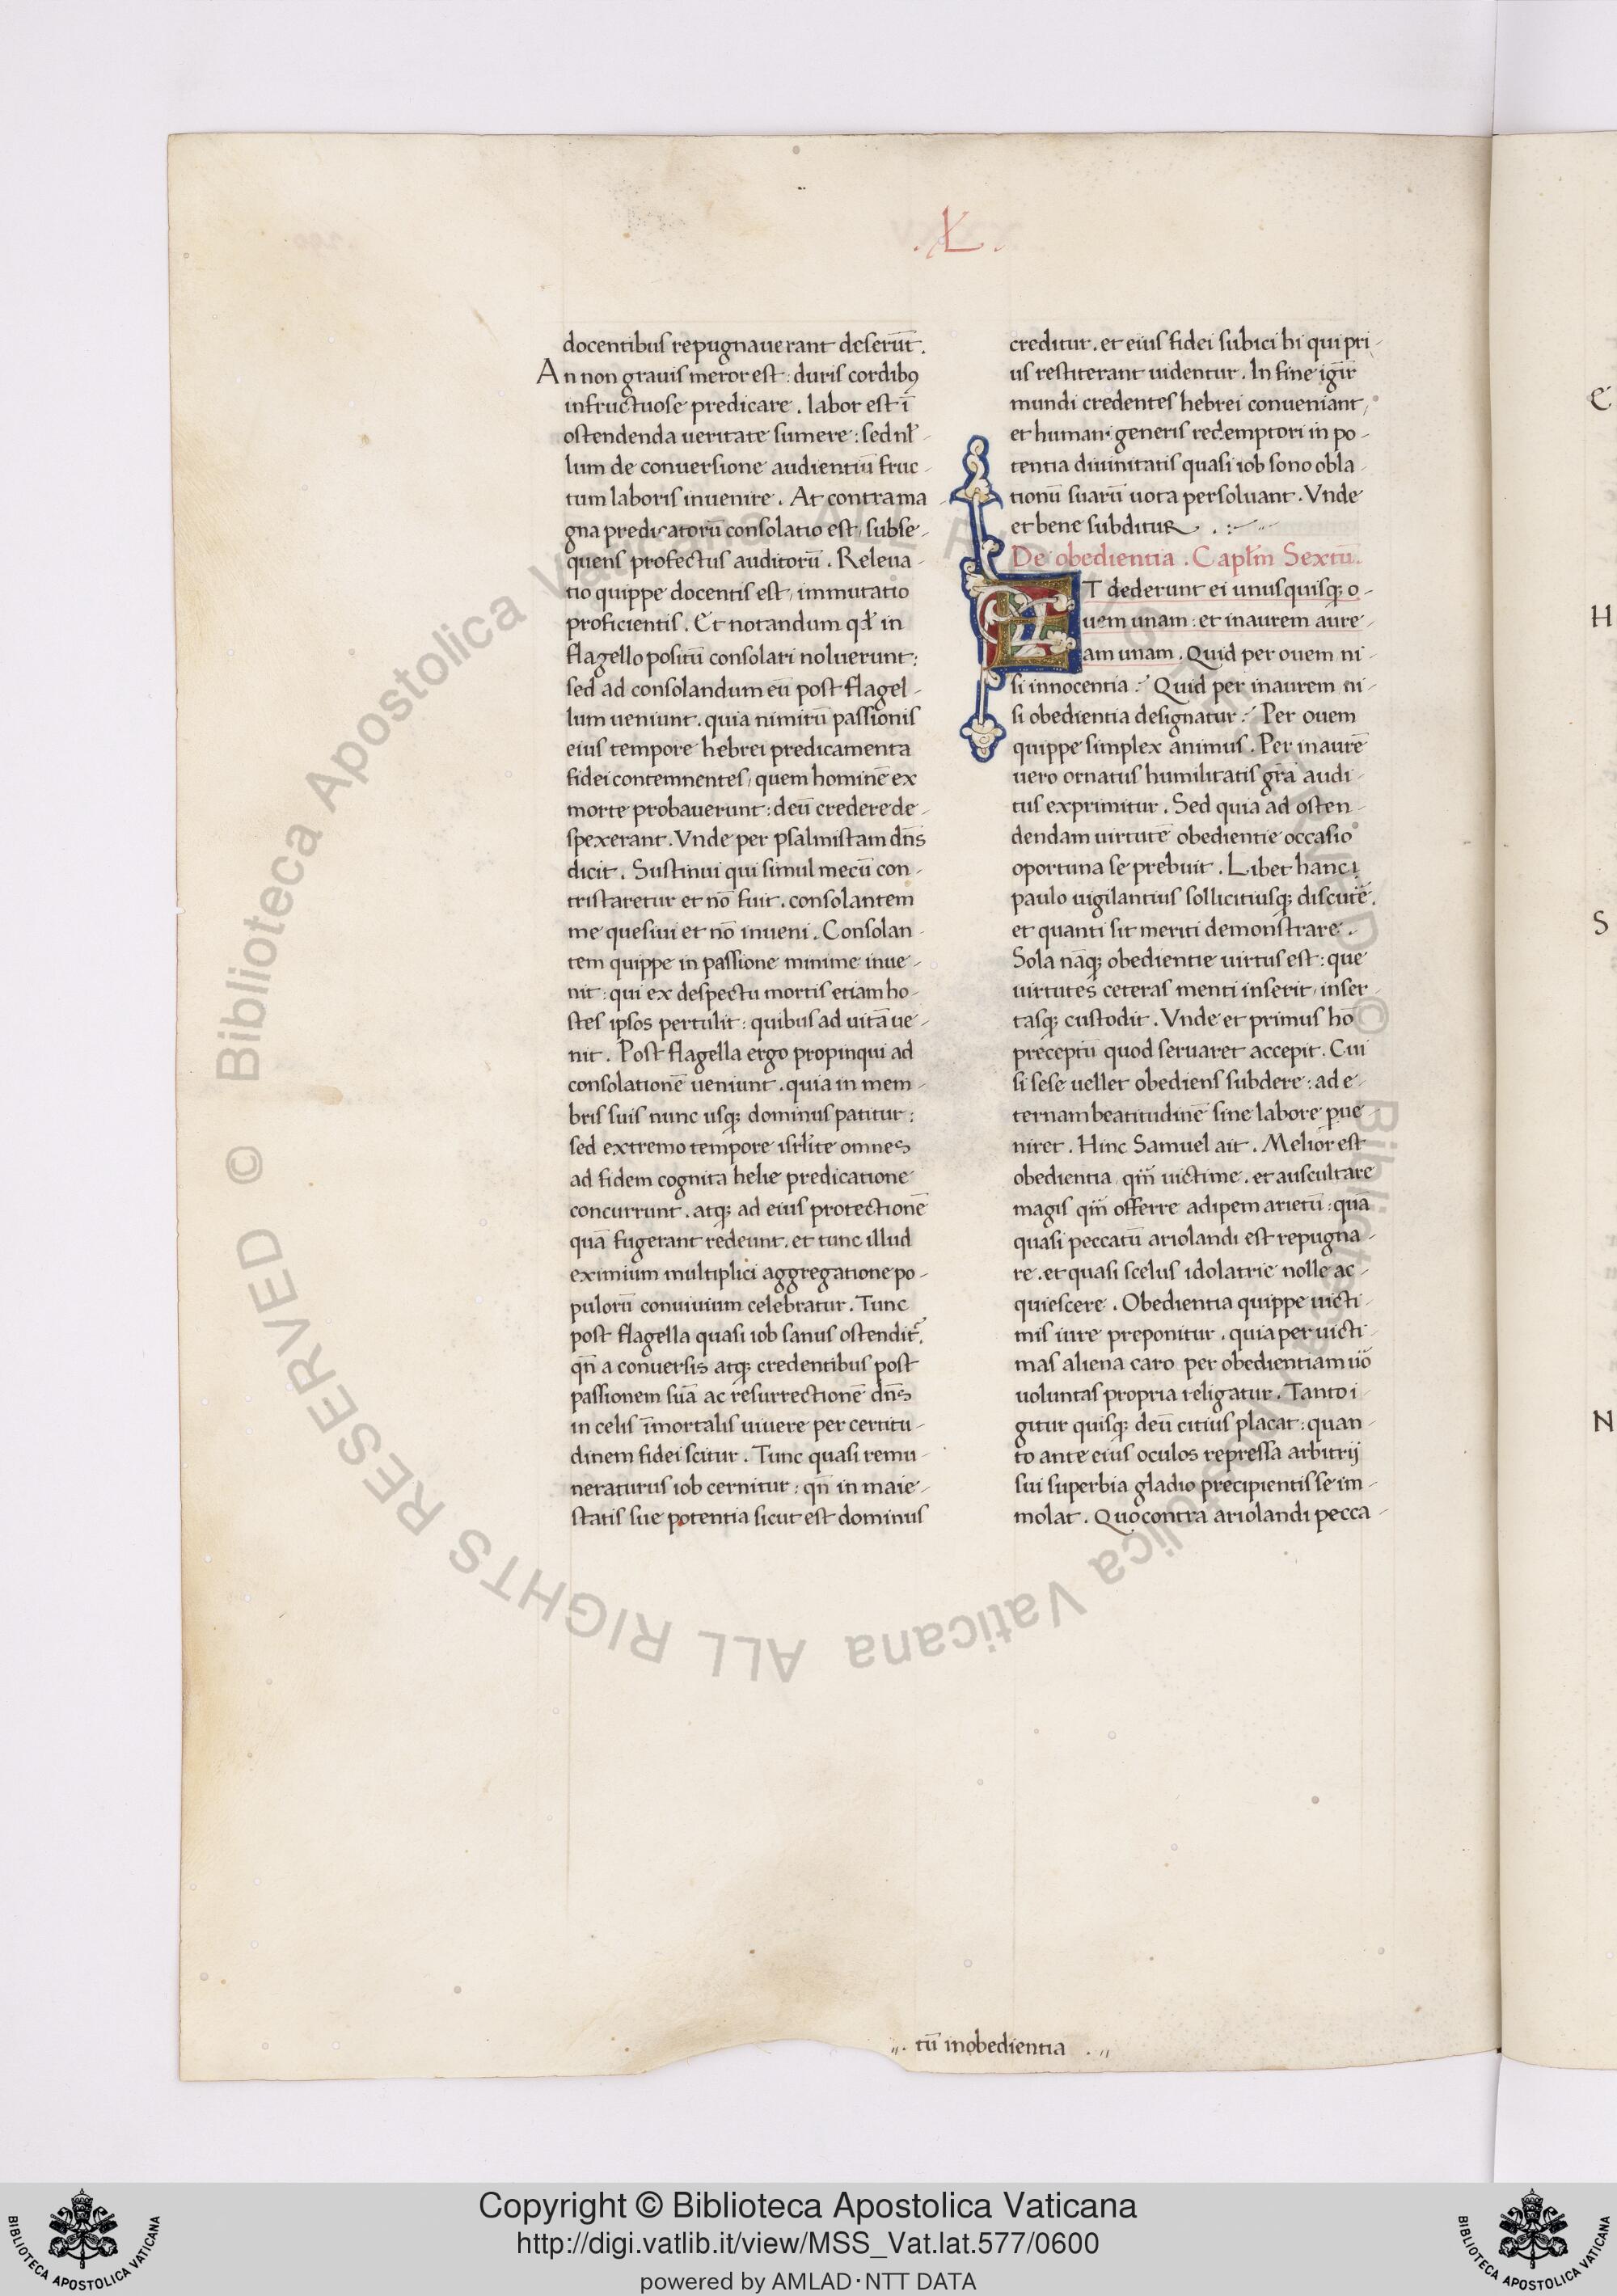 .XL.
docentibus repugnauerant deserūt.
An non grauis meror est: duris cordibꝰ
infructuose predicare. labor est ī
ostendenda ueritate sumere: sed nł-
lum de conuersione audientiū fruc-
tum laboris inuenire. At contra ma-
gna predicatorū consolatio est, subse-
quens profectus auditorū. Releua-
tio quippe docentis est, immutatio
proficientis. Et notandum qđ in
flagello positū consolari noluerunt:
sed ad consolandum eū post flagel-
lum ueniunt. quia nimirū passionis
eius tempore hebrei predicamenta
fidei contemnentes, quem hominē ex
morte probauerunt: deū credere de-
spexerant. Vnde per psalmistam dn̄s
dicit. Sustinui qui simul mecū con-
tristaretur et nō fuit. consolantem
me quesiui et nō inueni. Consolan-
tem quippe in passione minime inue-
nit: qui ex despectu mortis etiam ho-
stes ipsos pertulit: quibus ad uitā ue-
nit. Post flagella ergo propinqui ad
consolationē ueniunt. quia in mem-
bris suis nunc usqꝫ dominus patitur:
sed extremo tempore isrłite omnes
ad fidem cognita helie predicatione
concurrunt. atqꝫ ad eius protectionē
quā fugerant redeunt. et tunc illud
eximium multiplici aggregatione po-
pulorū conuiuium celebratur. Tunc
post flagella quasi iob sanus ostendit᷑.
qn̄ a conuersis atqꝫ credentibus post
passionem suā ac resurrectionē dn̄s
in celis īmortalis uiuere per certitu-
dinem fidei scitur. Tunc quasi remu-
neraturus iob cernitur: qn̄ in maie-
statis sue potentia sicut est dominus
creditur. et eius fidei subici hi qui pri-
us restiterant uidentur. In fine igiṙ
mundi credentes hebrei conueniant,
et humani generis redemptori in po-
tentia diuinitatis quasi iob sono obla-
tionū suarū uota persoluant. Vnde
et bene subditur. .:-
De obedientia. Capłm Sextū.
ET dederunt ei unusquisqꝫ o-
uem unam: et inaurem aure-
am unam. Quid per ouem ni-
si innocentia? Quid per inaurem ni-
si obedientia designatur? Per ouem
quippe simplex animus. Per inaurē
uero ornatus humilitatis gr̄a audi-
tus exprimitur. Sed quia ad osten-
dendam uirtutē obedientie occasio
oportuna se prebuit. Libet hanc
paulo uigilantius sollicitiusqꝫ discutē.
et quanti sit meriti demonstrare.
Sola nāqꝫ obedientie uirtus est: que
uirtutes ceteras menti inserit, inser-
tasqꝫ custodit. Vnde et primus hō
preceptū quod seruaret accepit. Cui
si sese uellet obediens subdere: ad e-
ternam beatitudinē sine labore ꝑue-
niret. Hinc Samuel ait. Melior est
obedientia qm̄ uictime. et auscultare
magis qm̄ offerre adipem arietū: quia
quasi peccatū ariolandi est repugna-
re. et quasi scelus idolatrie nolle ac-
quiescere. Obedientia quippe uicti-
mis iure preponitur. quia per uicti-
mas aliena caro per obedientiam uō
uoluntas propria religatur. Tanto i-
gitur quisqꝫ deū citius placat: quan-
to ante eius oculos repressa arbitrij
sui superbia gladio precipientis se im-
molat. Quo contra ariolandi pecca-
,,. tū inobedientia .,,
C
H
S
N
© Biblioteca Apostolica Vaticana ALL RIGHTS RESERVED © Biblioteca Apostolica Vaticana ALL RIGHTS RESERVED
Copyright © Biblioteca Apostolica Vaticana
http://digi.vatlib.it/view/MSS_Vat.lat.577/0600
powered by AMLAD·NTT DATA
BIBLIOTECA APOSTOLICA VATICANA
BIBLIOTECA APOSTOLICA VATICANA